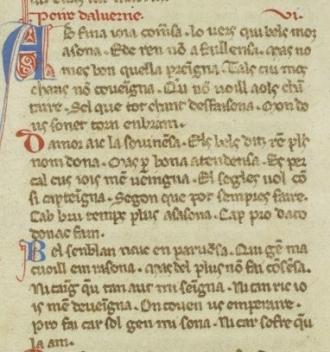 Peire daluernie. .vi.
Ab fina ioia comēsa . lo uers qui bels moz
asona . E de ren nō a faillensa . Mas no
mes bon quella preigna . Tals cui mos
chans nō coueigna . Qu nō uoill aols chā
taire . Sel que tot chant desfaisona . Mon do
us sonet torn en bram .
Damor ai la souinēsa . Els bels diz rē plꝰ
nom dona . Mas ꝑ bona atendensa . Es per
cal cus iois mē ueingna . El segles uol cō
si capteigna . Segon que pot sempre faire .
Cab breu temps plus asasona . Cap pro daco
don ac fam .
Bel senblan naie en paruēsa . Qui gē ma
cuoill em rasona . mas del plus nō fai cōsēsa .
Ni taing qu tan aut mi seigna . Ni tan ric io
is mē deueigna . On couen us emperaire .
pro fai car sol gen mi sona . Ni car sofre qu
la am .